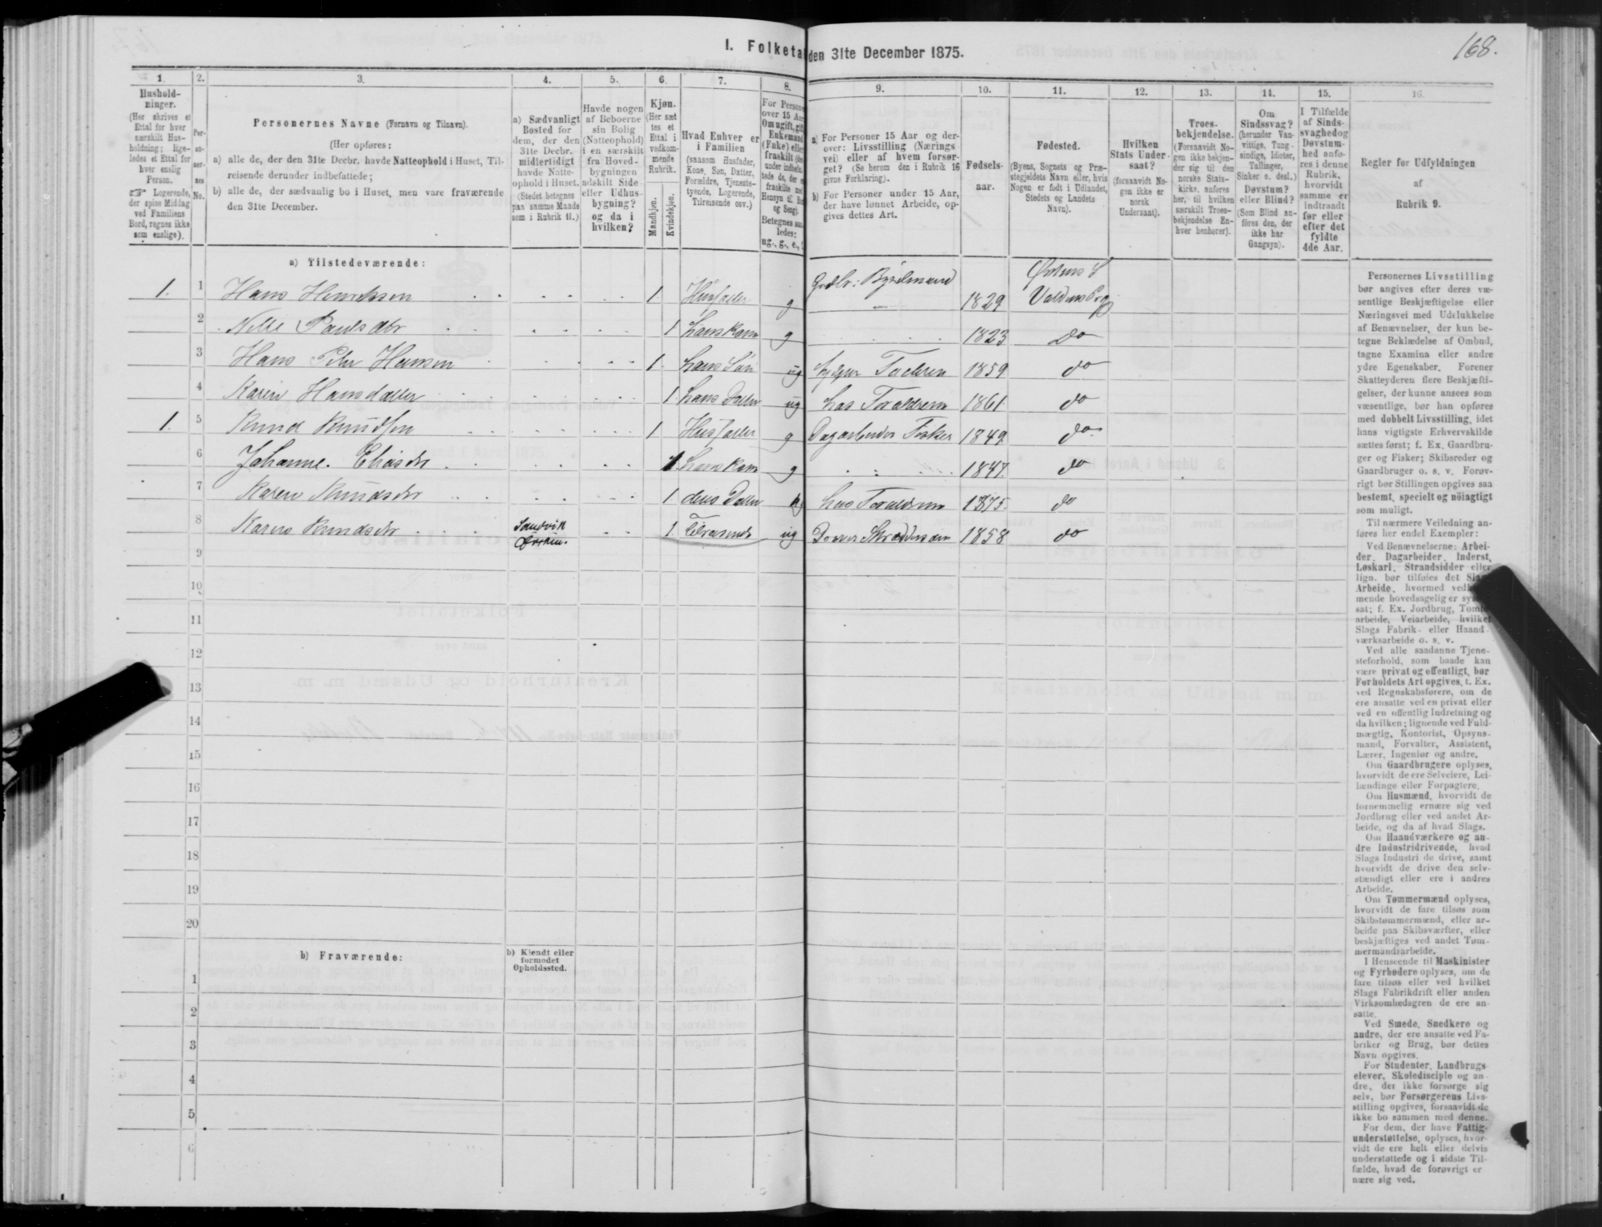 168.
I. Folketa
den 31te December 1875.
1.
2.
3.
4.
5.
6.
7.
8.
9.
10.
11.
12.
13.
14.
15.
16.
Hushold-
ninger.
(Her skrives et
Ettal for hver
særskilt Hus-
holdning; lige-
ledes et Ettal for
hver enslig
Person.
☞ Logerende,
der spise Middag
ved Familiens
Bord, regnes ikke
som enslige).
Per-
so-
ner-
nes
No.
Personernes Navne (Fornavn og Tilnavn).
(Her opføres:
a) alle de, der den 31te Decbr. havde Natteophold i Huset, Til-
reisende derunder indbefattede;
b) alle de, der sædvanlig bo i Huset, men vare fraværende
den 31te December.
a) Sædvanligt
Bosted for
dem, der den
31te Decbr.
midlertidigt
havde Natte-
ophold i Huset.
(Stedet betegnes
paa samme Maade
som i Rubrik 11.)
Havde nogen
af Beboerne
sin Bolig
(Natteophold)
i en særskilt
fra Hoved-
bygningen
adskilt Side-
eller Udhus-
bygning?
og da i
hvilken?
Kjøn.
(Her sæt
tes et
Ettal i
vedkom-
mende
Rubrik.
Mandkjøn.
Kvindekjøn.
Hvad Enhver er
i Familien
(saasom Husfader,
Kone, Søn, Datter,
Forældre, Tjeneste-
tyende, Logerende,
Tilreisende osv.)
For Persone
over 15 Aar
Om ugift, gift
Enkemand
(Enke) eller
fraskilt
Betegnes saa-
ledes:
ug., g., e.,
a) For Personer 15 Aar og der-
over: Livsstilling (Nærings
vei) eller af hvem forsør-
get? (Se herom den i Rubrik 16
givne Forklaring).
b) For Personer under 15 Aar,
der have lønnet Arbeide, op-
gives dettes Art.
Fødsels-
aar.
Fødested.
(Byens, Sognets og Præ-
stegjeldets Navn eller, hvis
Nogen er født i Udlandet,
Stedets og Landets
Navn).
Hvilken
Stats Under-
saat?
(forsaavidt No-
gen ikke er
norsk
Undersaat).
Troes-
bekjendelse.
(Forsaavidt No-
gen ikke bekjen-
der sig til den
norske Stats-
kirke, anføres
her, til hvilken
særskilt Troes-
bekjendelse En-
hver henhører).
Om
Sindssvag?
(herunder Van-
vittige, Tung-
sindige, Idioter,
Tullinger,
Sinker o. desl.)
Døvstum?
eller Blind?
(Som Blind an-
føres den, der
ikke har
Gangsyn).
I Tilfælde
af Sinds-
svaghed og
Døvstum-
hed anfø-
res i denne
Rubrik,
hvorvidt
samme er
indtraadt
før eller
efter det
fyldte
4de Aar.
Regler for Udfyldningen
af
Rubrik 9.
a) Tilstedeværende:
1. 1 Hans Henriksen 1 Husfader g 1829
2 Poulsdtr 1 hans Kone g 1823 do
3 Hans Peter Hansen 1 hans Søn ug 1859 do
4 Karen Hansdatter 1 hans Datter ug hos Forældrene 1861 do
1. 5 Knud Knudsen 1 Husfader g Dagarbeider Fisker 1849 do
6 Johanne 1 hans Kone g 1847 do
7 Karen Knudsdtr 1 deres Datter ug hos Forældrene 1875 do
8 Karen Knudsdtr Sandvik 1 ug 1858 do
9
10
11
12
13
14
15
16
17
18
19
20
b) Fraværende:
b) Kjendt eller
formodet
Opholdssted.
1
2
3
4
5
6
Personernes Livsstilling
bør angives efter deres væ-
sentlige Beskjæftigelse eller
Næringsvei med Udelukkelse
af Benævnelser, der kun be-
tegne Beklædelse af Ombud,
tagne Examina eller andre
ydre Egenskaber. Forener
Skatteyderen flere Beskjæfti-
gelser, der kunne ansees som
væsentlige, bør han opføres
med dobbelt Livsstilling, idet
hans vigtigste Erhvervskilde
sættes først; f. Ex. Gaardbru-
ger og Fisker; Skibsreder og
Gaardbruger o. s. v. Forøv-
rigt bør Stillingen opgives saa
bestemt, specielt og nøiagtigt
som muligt.
Til nærmere Veiledning an-
føres her endel Exempler:
Ved Benævnelserne: Arbei-
der, Dagarbeider, Inderst,
Løskarl, Strandsidder eller
lign. bør tilføies det Slags
Arbeide, hvormed vedkom-
mende hovedsagelig er syssel-
sat; f. Ex. Jordbrug, Tomte-
arbeide, Veiarbeide, hvilket
Slags Fabrik- eller Haand-
værksarbeide o. s. v.
Ved alle saadanne Tjene-
steforhold, som baade kan
være privat og offentligt, bør
Forholdets Art opgives, t. Ex.
ved Regnskabsførere, om de
ere ansatte ved en privat eller
ved en offentlig Indretning og
da hvilken; lignende ved Fuld-
mægtig, Kontorist, Opsyns-
mand, Forvalter, Assistent,
Lærer, Ingeniør og andre.
Om Gaardbrugere oplyses,
hvorvidt de ere Selveiere, Lei-
lændinge eller Forpagtere.
Om Husmænd, hvorvidt de
fornemmelig ernære sig ved
Jordbrug eller ved andet Ar-
beide, og da af hvad Slags.
Om Haandværkere og an-
dre Industridrivende, hvad
Slags Industri de drive, samt
hvorvidt de drive den selv-
stændigt eller ere i andres
Arbeide.
Om Tømmermænd oplyses,
hvorvidt de fare tilsøs som
Skibstømmermænd, eller ar-
beide paa Skibsværfter, eller
beskjæftiges ved andet Tøm-
mermandsarbeide.
I Henseende til Maskinister
og Fyrbødere oplyses, om de
fare tilsøs eller ved hvilket
Slags Fabrikdrift eller anden
Virksomhedsgren de ere an-
satte.
Ved Smede, Snedkere og
andre, der ere ansatte ved Fa-
briker og Brug, bør dettes
Navn opgives.
For Studenter, Landbrugs-
elever, Skoledisciple og an-
dre, der ikke forsørge sig
selv, bør Forsørgerens Livs-
stilling opgives, forsaavidt de
ikke bo sammen med denne.
For dem, der have Fattig-
understøttelse, oplyses, hvor-
vidt de ere helt eller delvis
understøttede og i sidste Til-
fælde, hvad de forøvrigt er
nære sig ved.